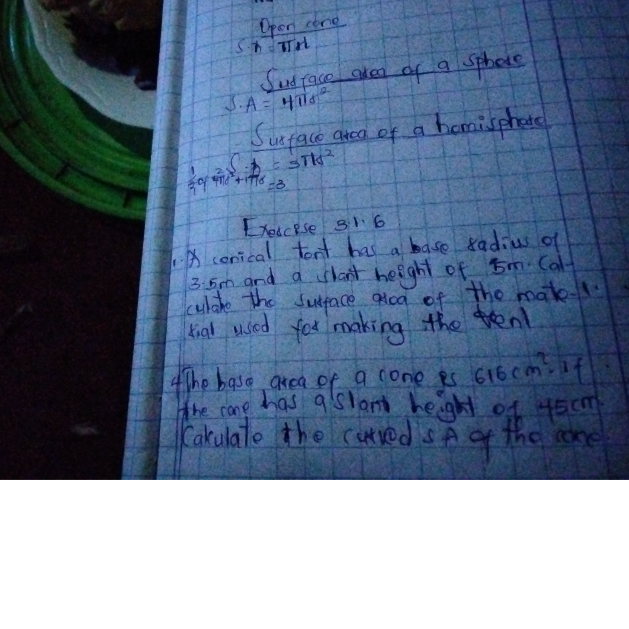 Open cone
S.A = πrl
Surface area of a sphere
S.A = 4πr²
Surface area of a hemisphere
S.A = 3πr²
=3
Exercise 31.6
1. A conical tent has a base radius of
3.5m and a slant height of 5m. Cal-
culate the surface area of the mate-
rial used for making the tent
4 The base area of a cone is 616cm². If
the cone has a slant height of 45cm.
Calculate the curved S A of the cone.